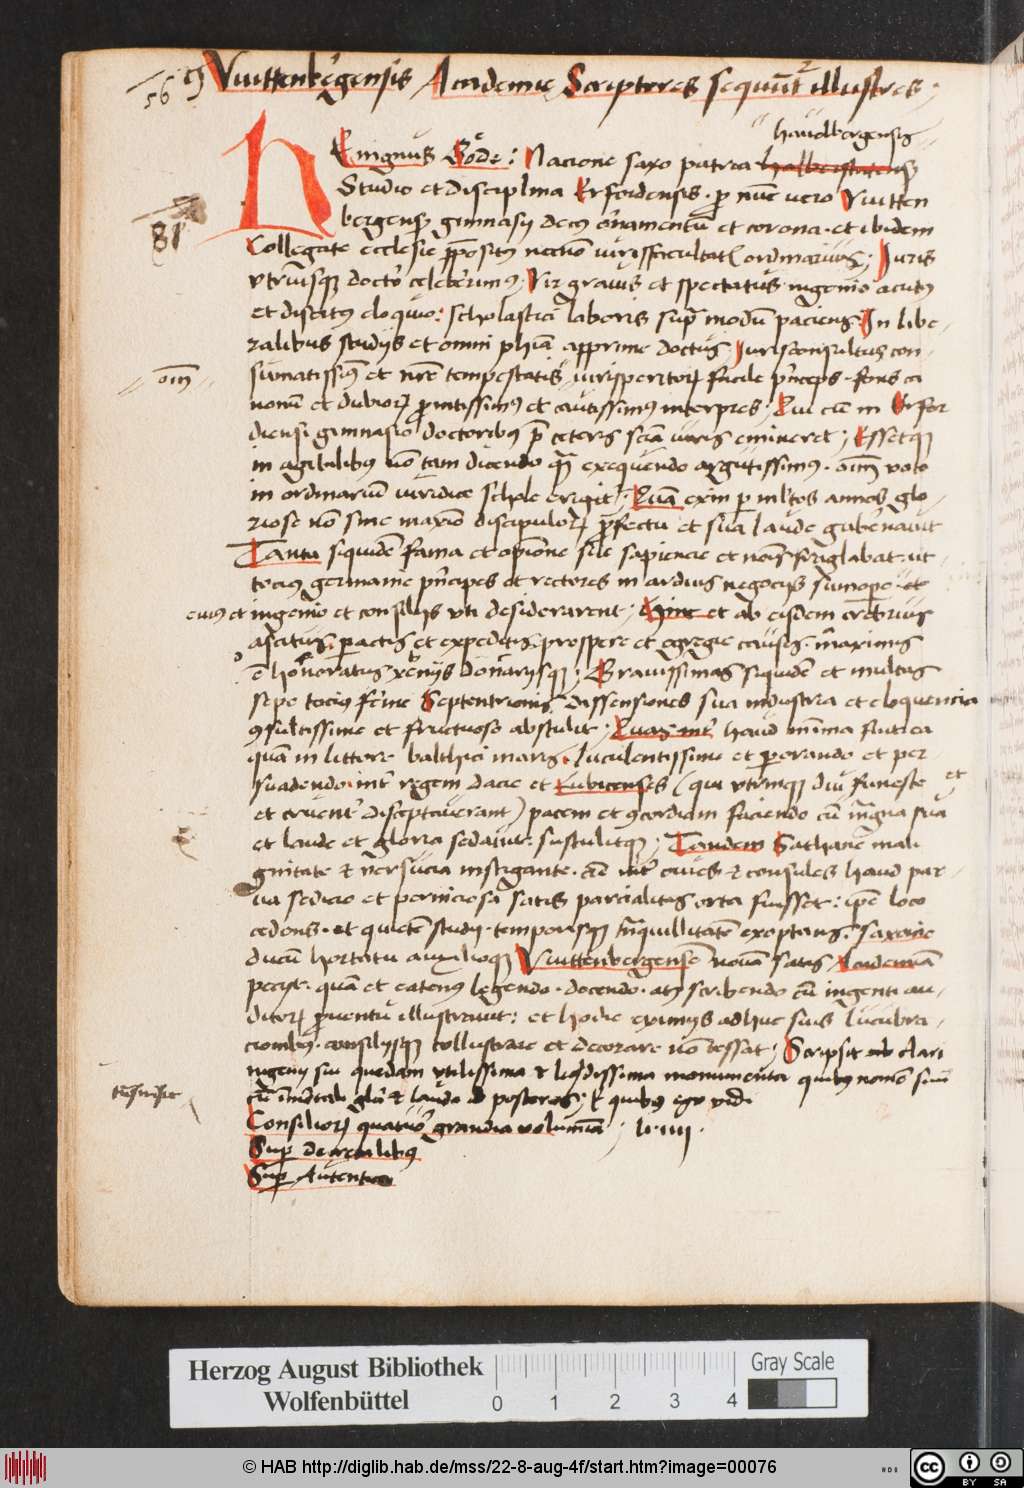 56
Vuittenbergensis Academie Scriptores sequūt² illustres;
haudbergensis
HEningnus Göde: Nacione saxo patria halberstatens̄
Studio et disciplina Erfordensis. ꝓ nūc vero Vuitten
81
bergens̄ gimnasij decus ornamentū et corona. et ibidem
Collegate ecclesie p̄positus necnō iuris facultatꝭ ordinarius; Juris
vtriusqꝫ doctor celeberimus. Vir grauis et spectatus ingenio acutus
et discitus eloquio: scholastici laboris supra modū paciens. In libe-
ralibus studijs et omni phīa apprime doctus Jurisconsultus con-
oīm
sumatissimus et nr̄e tempestatis iurisperitoꝝ facile pr̄nceps. fons ca
nonū et dubioꝝ ꝓmtissimus et cautissimus interpres; Qui cū in Erfor
diensi gimnasio doctoribus p̄ ceteris sciā iuris emineret; Essetqꝫ
in agibilibus nō tam dicendo qᷓ exequendo argutissimus. oīm voto
in ordinariū iuridice schole erigit; Quā exin ꝑ ml̄tos annos glo-
riose nō sine maxīo discipuloꝝ ꝓfectu et sua laude gubernauit
Tanta siquidē fama et opinōne sile sapiencie et nōis feriglabat. ut
tocius germanie prīncipes et rectores in arduis negocijs sumopere et
eius et ingenio et consilijs vti desiderarent; Hinc et ab eisdem crebrius
ascitus. ꝑactis et expeditis prospere et egregie causis. maximis
ē honoratus xenijs donarijsqꝫ; Grauissimas siquidē et multas
sepe tocius ferme Septentrionis dissensiones sua industria et eloquencia
ꝯsultissime et fructuose abstulit; Quas int̄ haud minīma fluctica
quā in littore balthici maris. luculentissime et ꝑorando et per
suadendo int̄ regem dacie et Lubicenses (qui vtrimqꝫ diu funeste et
et cruent̄ disceptauerant) pacem et ꝯcordiam faciendo cū magna sua
et laude et gloria sedauit. sustulitqꝫ; Tandem Sathane mali
gnitate et versucia instigante. cū int̄ ciues et consules haud par-
ua sedicio et perniciosa satis parcialitas orta fuisset: ip̄e loco
cedens. et quietē studij. temporisqꝫ trāquillitatē exoptans. saxonie
ducū hortatu auxilioqꝫ Vuittenbergensē nouā satis Academiā
pecijt. quā et eatenus legendo. docendo. atqꝫ scribendo cū ingenti au-
ditoꝝ ꝓuentu illustrauit: et hodie eximijs adhuc suis lucubra-
cionibus. consilijsqꝫ collustrare et decorare nō cessat; Scripsit clari
ingenij sui quedam vtilissima et liqdissima monumenta quibus nomē suū
cū imortali gloria et laude ad posteros; E quibus ego vidi
Consilioꝝ quatuor grandia volumina; li iiij.
Super decretalibus
Super Autentica
Herzog August Bibliothek
Wolfenbüttel
0 1 2 3 4
Gray Scale
© HAB http://diglib.hab.de/mss/22-8-aug-4f/start.htm?image=00076
HAB
cc BY SA